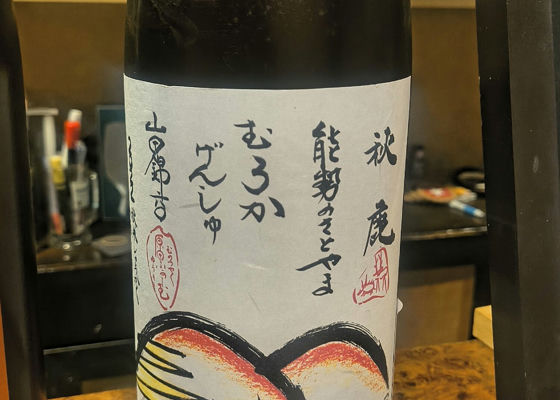 秋鹿
能勢のさとやま
むろか
げんしゅ
山田錦